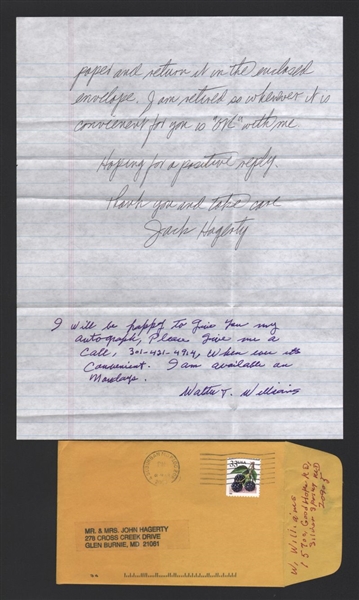 paper and return it in the enclosed
envelope. I am retired so wherever it is
convenient for you is "OK" with me
Hoping for a positive reply.
Thank you and take care
Jack Hagerty
I will be happy to give you my
autograph, Please give me a
Call, 301-421-4914, When ever its
Convenient. I am available on
Mondays.
Walter T. Williams
33
MR. & MRS. JOHN HAGERTY
278 CROSS CREEK DRIVE
GLEN BURNIE, MD 21061
W. Williams
Good Hope RD,
Silver Spring MD
20905